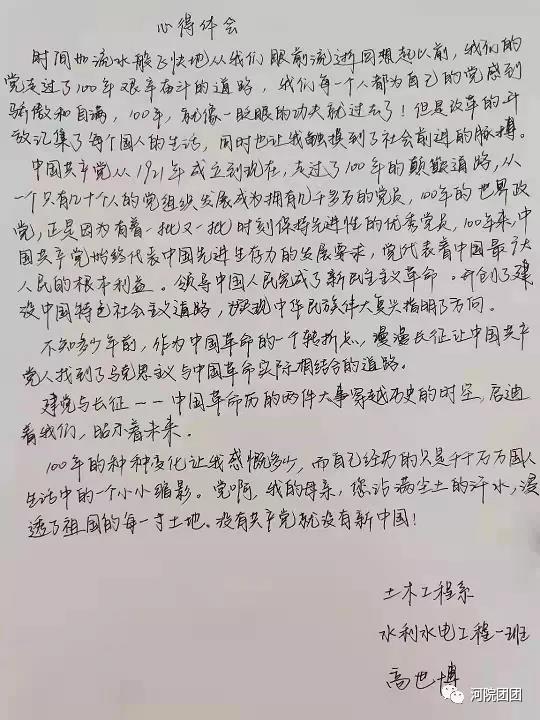 心得体会
时间如流水般飞快地从我们眼前流逝回想起以前，我们的
党走过了100年艰辛奋斗的道路，我们每一个人都为自己的党感到
骄傲和自满，100年，就像一眨眼的功夫就过去了！但是改革的斗
敌记集了每个国人的生活，同时也让我触摸到了社会前进的脉搏。
中国共产党从1921年成立到现在，走过了100年的颠簸道路，从
一个只有几十个人的党组织发展成为拥有几千多万的党员，100年的世界政
党，正是因为有着一批又一批时刻保持先进性的优秀党员，100年来，中
国共产党始终代表中国先进生存力的发展要求，党代表着中国最广大
人民的根本利益。领导中国人民完成了新民主主义革命。开创了建
设中国特色社会主义道路，实现中华民族伟大复兴指明了方向。
不知多少年前，作为中国革命的一个转折点，漫漫长征让中国共产
党人找到了马克思主义与中国革命实际相结合的道路。
建党与长征——中国革命历的两件大事穿越历史的时空，启迪
着我们，昭示着未来。
100年的种种变化让我感慨多少，而自己经历的只是千千万万国人
生活中的一个小小缩影。党啊，我的母亲，您沾满尘土的汗水，浸
透了祖国的每一寸土地。没有共产党就没有新中国！
土木工程系
水利水电工程一班
高世博
河院团团